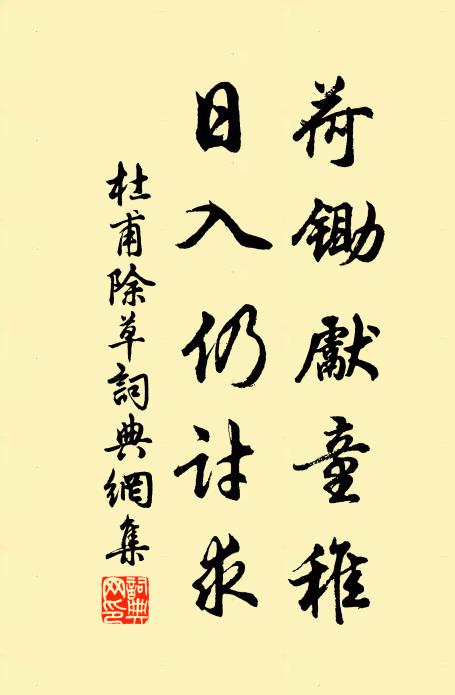 荷鋤獻童稚
日入仍討求
杜甫除草詞典網集
詞典網印